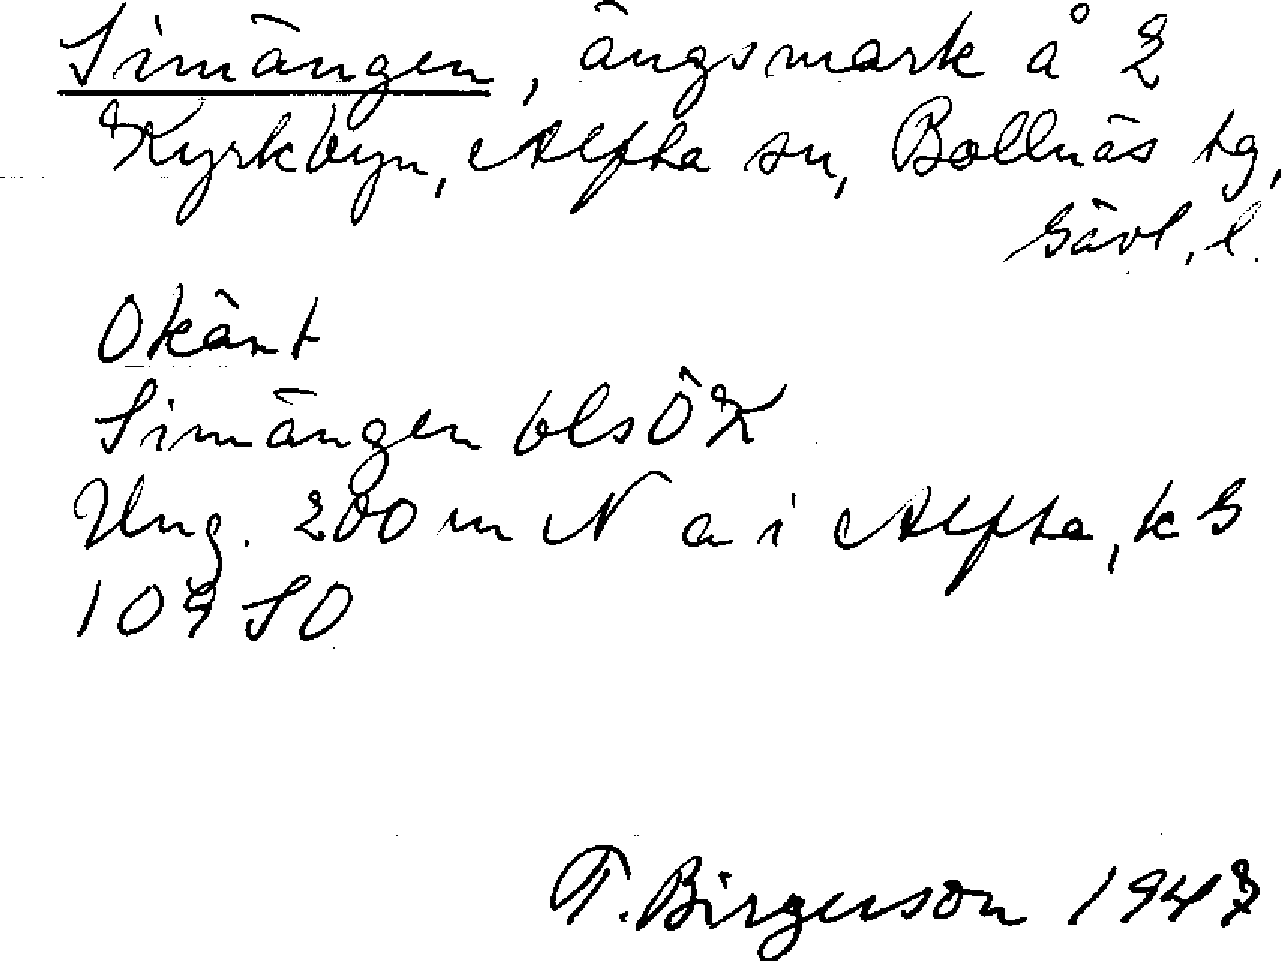 Simängen, ängsmark å 2
Kyrkbyn, Alfta sn, Bollnäs tg,
Gävl. l.
Okänt
Simängen bls ÖK
Ung. 200 m N a i Alfta, k G
109 SO
T. Birgerson 1947